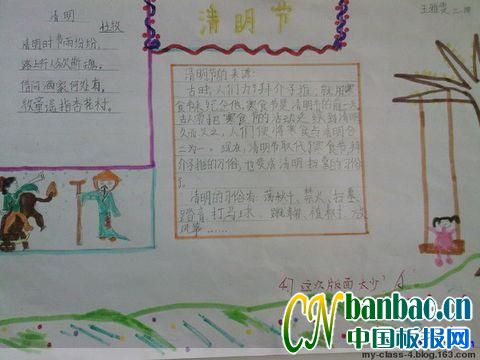 清明
杜牧
清明时节雨纷纷,
路上行人欲断魂。
借问酒家何处有,
牧童遥指杏花村。
清明节
王雅雯 二.四
清明节的来源:
古时,人们为了拜介子推,就用寒
食节来纪念他。寒食节是清明节的前一天
古人常把寒食节的活动延续到清明
久而久之,人们便将寒食与清明合
二为一。现在,清明节取代了寒食节,拜
介子推的习俗,也变成清明扫墓的习俗了
清明的习俗有:荡秋千、禁火、扫墓、
踏青、打马球、蹴鞠、植树、放
风筝……
这次版面太少
CNbanbao.cn
中国板报网
my-class-4.blog.163.com